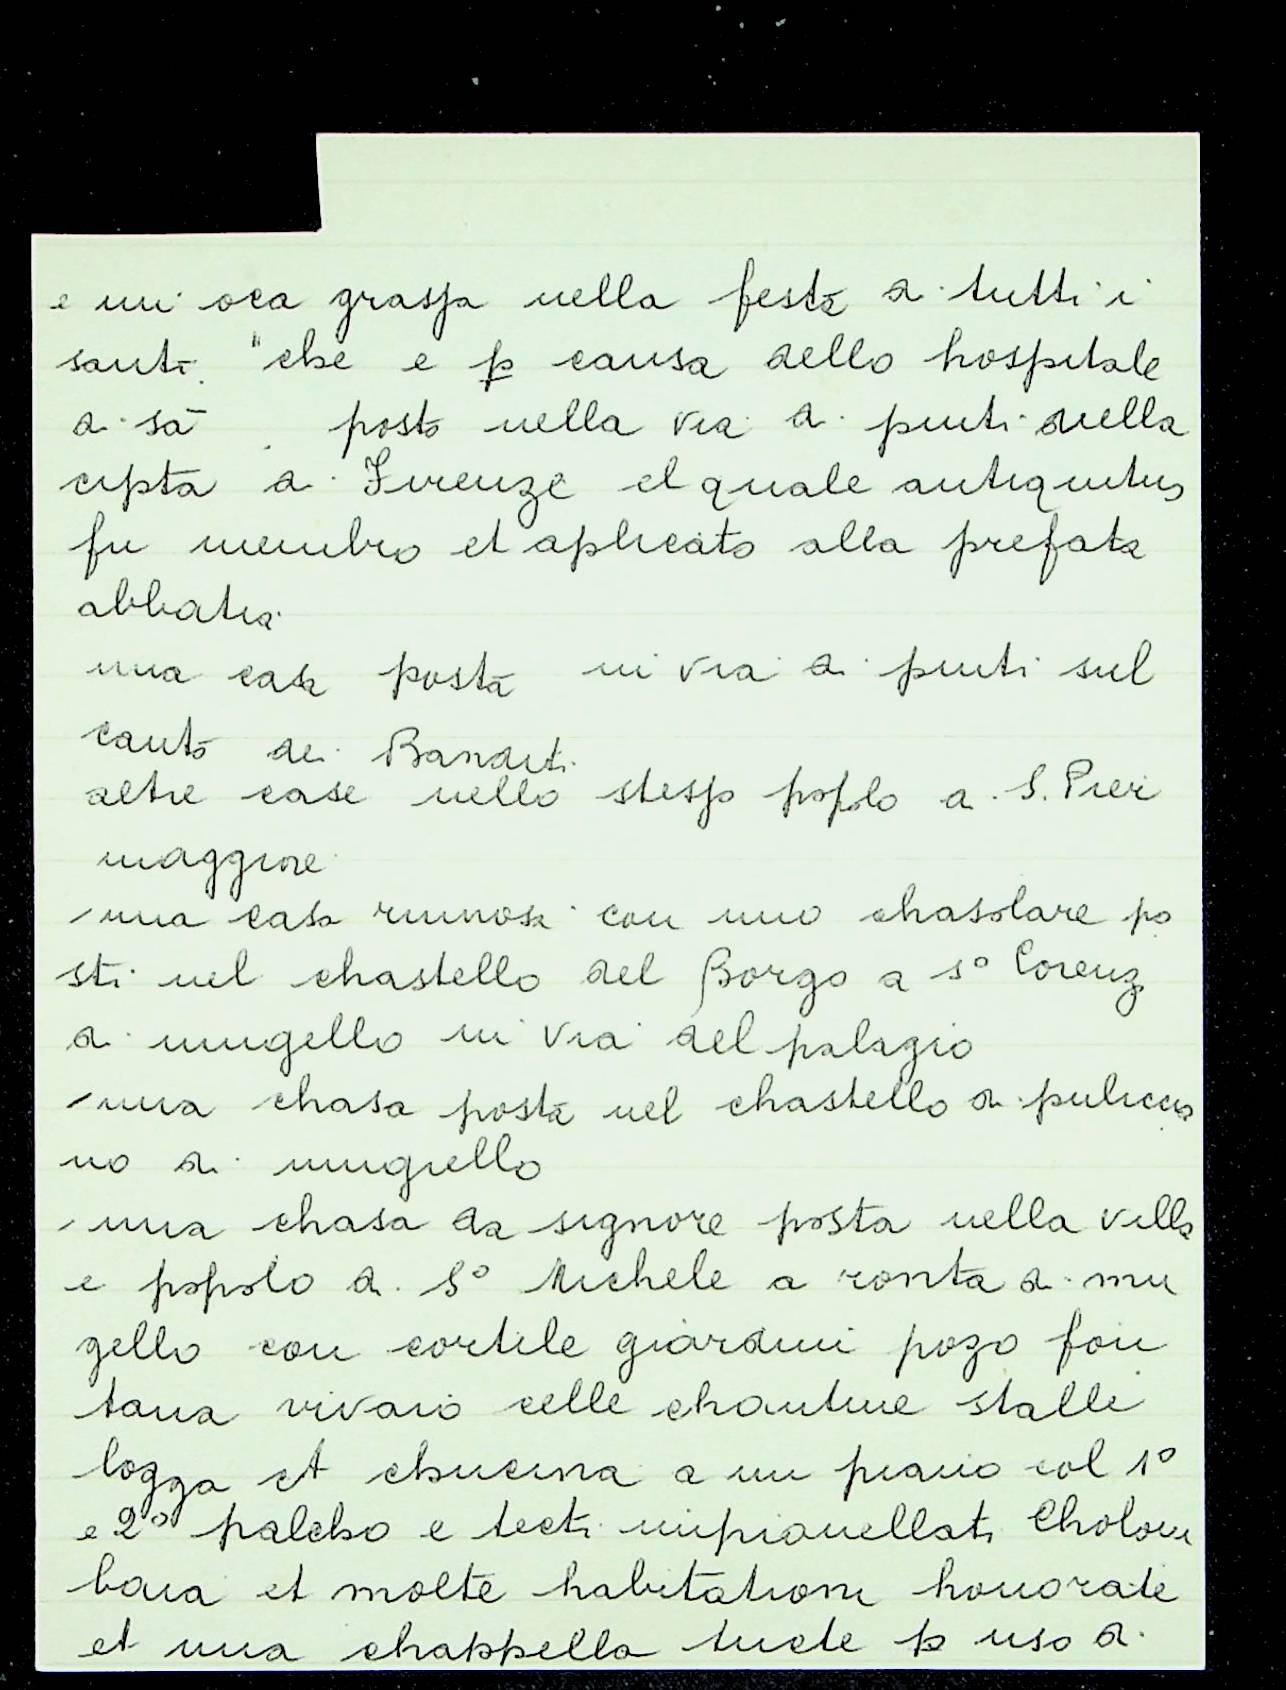 e un oca grassa nella festa di tutti i
santi. "che e p causa dello hospitale
di sā . posto nella via di pinti nella
cipta di Firenze el quale antiquitus
fu membro et aplicato alla prefata
abbatia
una casa posta in via di pinti sul
canto dei Banditi
altre case nello stesso popolo di S. Pier
maggiore
una casa ruinosa con uno chasolare po
sti nel chastello del Borgo a sº Lorenzo
di mugello in via del palagio
una chasa posta nel chastello di puliccia
no di mugiello
una chasa da signore posta nella villa
e popolo di Sº Michele a ronta di mu
gello con cortile giardini pozo fon
tana vivaio celle chantine stalle
loggia et chucina a un piano col 1º
e 2º palcho e tecti impianellati Cholom
baia et molte habitationi honorate
et una chappella tucte p uso di